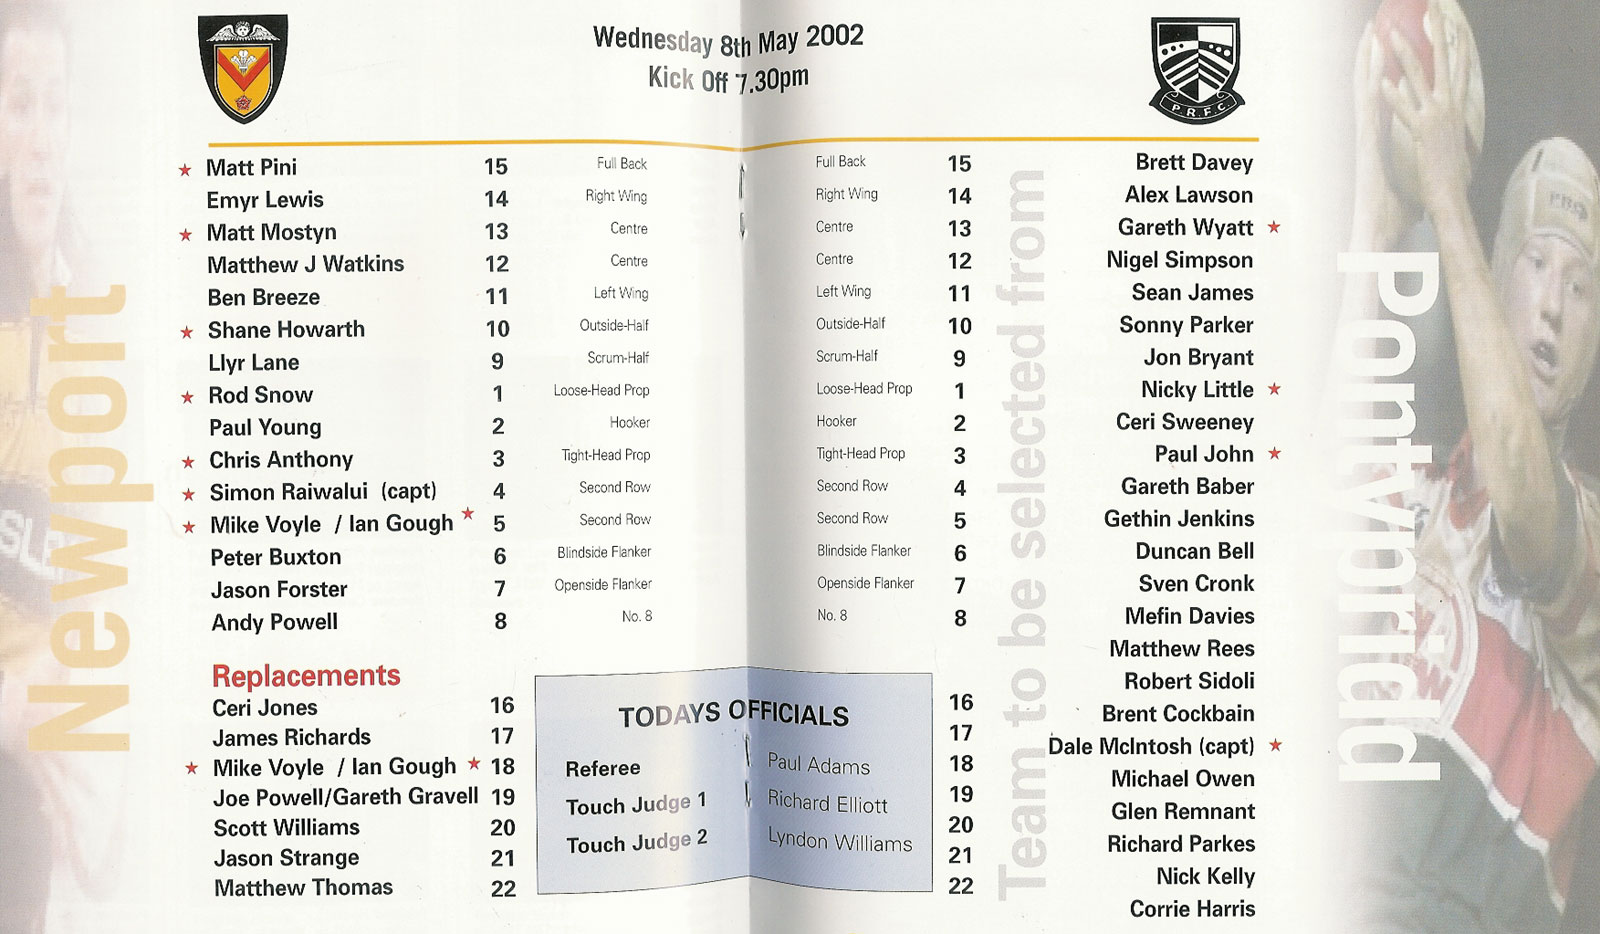 Wednesday 8th May 2002
Kick Off 7.30pm
Newport
Matt Pini 15 Full Back
Emyr Lewis 14 Right Wing
Matt Mostyn 13 Centre
Matthew J Watkins 12 Centre
Ben Breeze 11 Left Wing
Shane Howarth 10 Outside-Half
Llyr Lane 9 Scrum-Half
Rod Snow 1 Loose-Head Prop
Paul Young 2 Hooker
Chris Anthony 3 Tight-Head Prop
Simon Raiwalui (capt) 4 Second Row
Mike Voyle / Ian Gough 5 Second Row
Peter Buxton 6 Blindside Flanker
Jason Forster 7 Openside Flanker
Andy Powell 8 No. 8
Replacements
Ceri Jones 16
James Richards 17
Mike Voyle / Ian Gough 18
Joe Powell/Gareth Gravell 19
Scott Williams 20
Jason Strange 21
Matthew Thomas 22
TODAYS OFFICIALS
Referee Paul Adams
Touch Judge 1 Richard Elliott
Touch Judge 2 Lyndon Williams
P.R.F.C.
Full Back 15
Right Wing 14
Centre 13
Centre 12
Left Wing 11
Outside-Half 10
Scrum-Half 9
Loose-Head Prop 1
Hooker 2
Tight-Head Prop 3
Second Row 4
Second Row 5
Blindside Flanker 6
Openside Flanker 7
No. 8 8
16
17
18
19
20
21
22
Team to be selected from
Brett Davey
Alex Lawson
Gareth Wyatt
Nigel Simpson
Sean James
Sonny Parker
Jon Bryant
Nicky Little
Ceri Sweeney
Paul John
Gareth Baber
Gethin Jenkins
Duncan Bell
Sven Cronk
Mefin Davies
Matthew Rees
Robert Sidoli
Brent Cockbain
Dale McIntosh (capt)
Michael Owen
Glen Remnant
Richard Parkes
Nick Kelly
Corrie Harris
Pontypridd